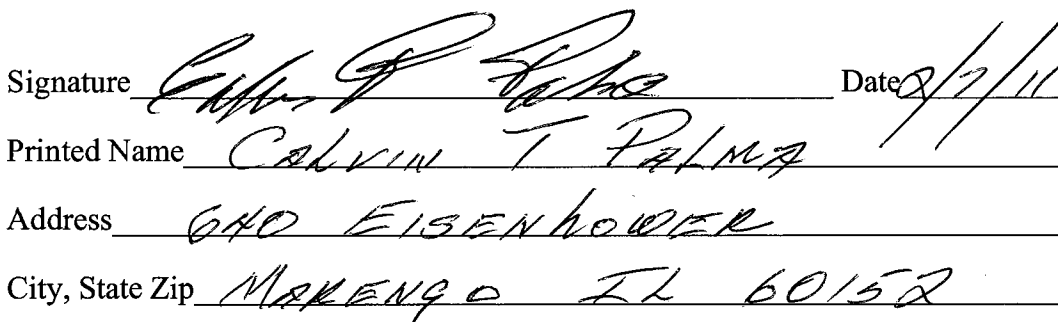 Signature Date 2/7/11
Printed Name CALVIN T PALMA
Address 640 EISENHOWER
City, State Zip MARENGO IL 60152